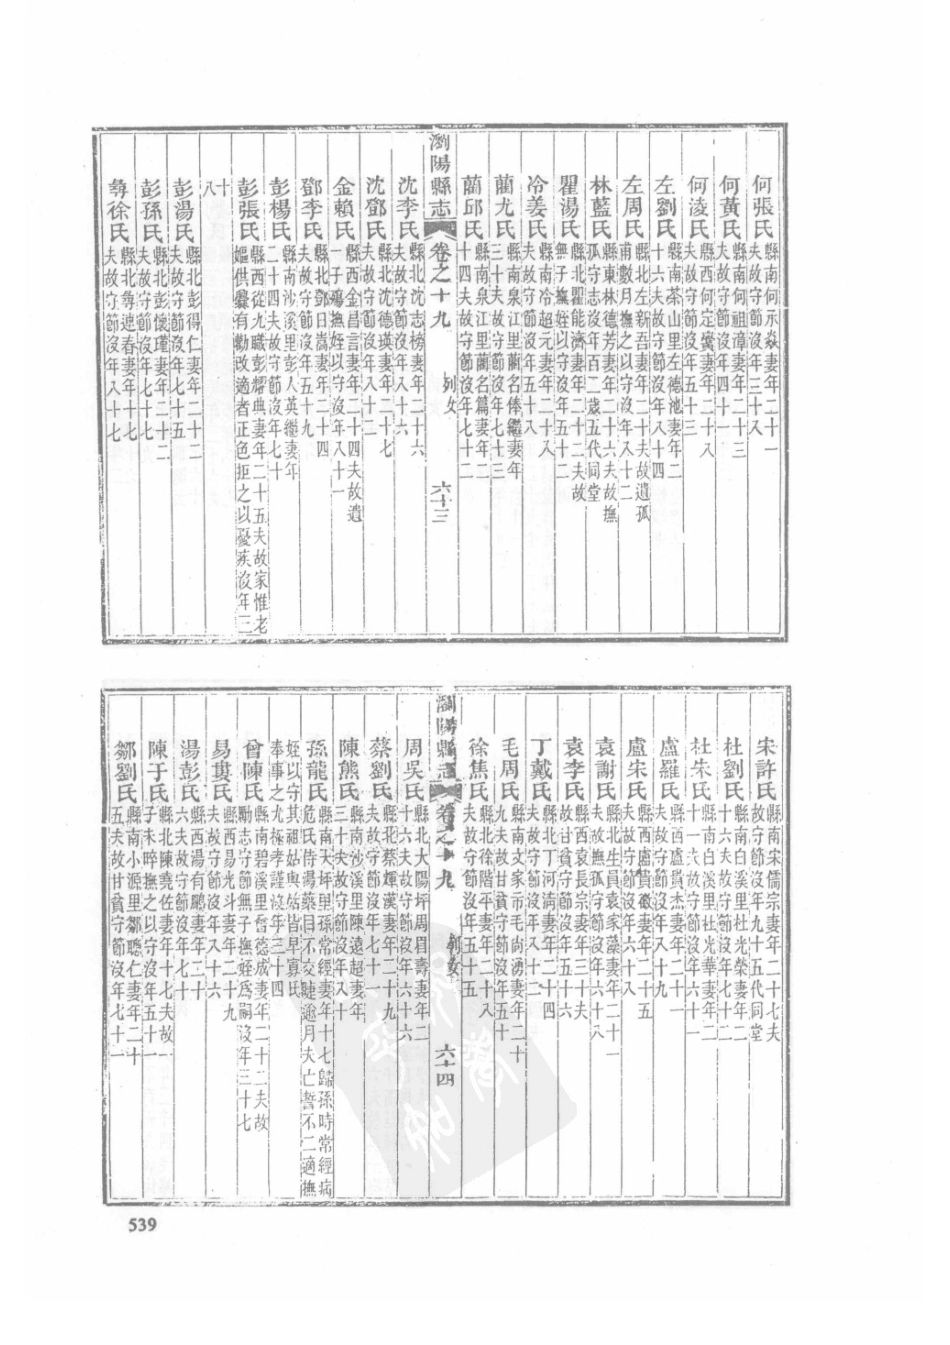 何張氏縣南何承焱妻年二十一
夫故守節沒年三十八
何黃氏縣南何祖漳妻年二十三
夫故守節沒年四十一
何淩氏縣西何定黌妻年二十八
夫故守節沒年五十三
左劉氏縣南茶山里左德池妻年二
十六夫故守節沒年八十四
左周氏縣北左新吾妻年二十夫故遺孤
甫數月撫之以守沒年八十二
林藍氏縣東林德芳妻年二十六夫故撫
孤守志沒年百二歲五代同堂
瞿湯氏縣北瞿能濟妻年二十二夫故
無子撫姪以守沒年五十二
冷姜氏縣南冷超元妻年二十八
夫故守節沒年五十八
藺尤氏縣南泉江里藺名俸繼妻年
三十夫故守節沒年七十三
藺邱氏縣南泉江里藺名篇妻年二
十四夫故守節沒年七十二
瀏陽縣志 卷之十九 列女 六十三
沈李氏縣北沈志榜妻年二十六
夫故守節沒年八十六
沈鄧氏縣北沈德瑛妻年二十七
夫故守節沒年八十二
金賴氏縣西金昌言妻年二十四夫故遺
一子殤撫姪以守沒年八十一
鄧李氏縣北鄧日嵩妻年二十四
夫故守節沒年五十九
彭楊氏縣南沙溪里彭人英繼妻年
二十四夫故守節沒年七十
彭張氏縣西從九職彭耀典妻年二十五夫故家惟老
嫗供爨有勸改適者正色拒之以憂疾沒年三
十
八
彭湯氏縣北彭得仁妻年二十二
夫故守節沒年七十五
彭孫氏縣北彭懷瑾妻年二十二
夫故守節沒年七十七
彝徐氏縣北彝連春妻年十七
夫故守節沒年八十七
宋許氏縣南宋儒宗妻年二十七夫
故守節沒年九十五代同堂
杜劉氏縣南白溪里杜光榮妻年二
十六夫故守節沒年七十二
杜朱氏縣南白溪里杜光華妻年二
十一夫故守節沒年六十一
盧羅氏縣西盧員杰妻年二十一
夫故守節沒年八十九
盧宋氏縣西盧貴徽妻年二十五
夫故守節沒年六十八
袁謝氏縣北生員袁家藻妻年二十一
夫故撫孤守節沒年六十八
袁李氏縣西袁長宗妻年三十夫
故甘貧守節沒年五十六
丁戴氏縣北丁河清妻年二十四
夫故守節沒年八十二
毛周氏縣南文家市毛尚湧妻年二十
九夫故甘貧守節沒年五十
徐焦氏縣北徐階平妻年二十八
夫故守節沒年五十五
瀏陽縣志 卷之十九 列女 六十四
周吳氏縣北大陽坪周眉壽妻年二
十六夫故守節沒年六十六
蔡劉氏縣北蔡煇漢妻年二十九
夫故守節沒年七十一
陳熊氏縣南沙溪里陳遠超妻年
三十夫故守節沒年八十
孫龍氏縣南大坪里孫常經妻年十七歸孫時常經病
危氏侍湯藥目不交睫逾月夫亡誓不二適撫
姪以守其祖姑與姑皆早寡氏
奉事之尤極孝謹沒年三十四
曾陳氏縣南碧溪里曾德成妻年二十二夫故
勵志守節無子撫姪爲嗣沒年三十七
易婁氏縣西易光斗妻年二十九
夫故守節沒年八十六
湯彭氏縣西湯有鵬妻年二十
六夫故守節沒年七十
陳于氏縣北陳堯佐妻年十七夫故一
子未晬撫之以守沒年五十一
鄒劉氏縣南小源里鄒聰仁妻年二十
五夫故甘貧守節沒年七十一
539